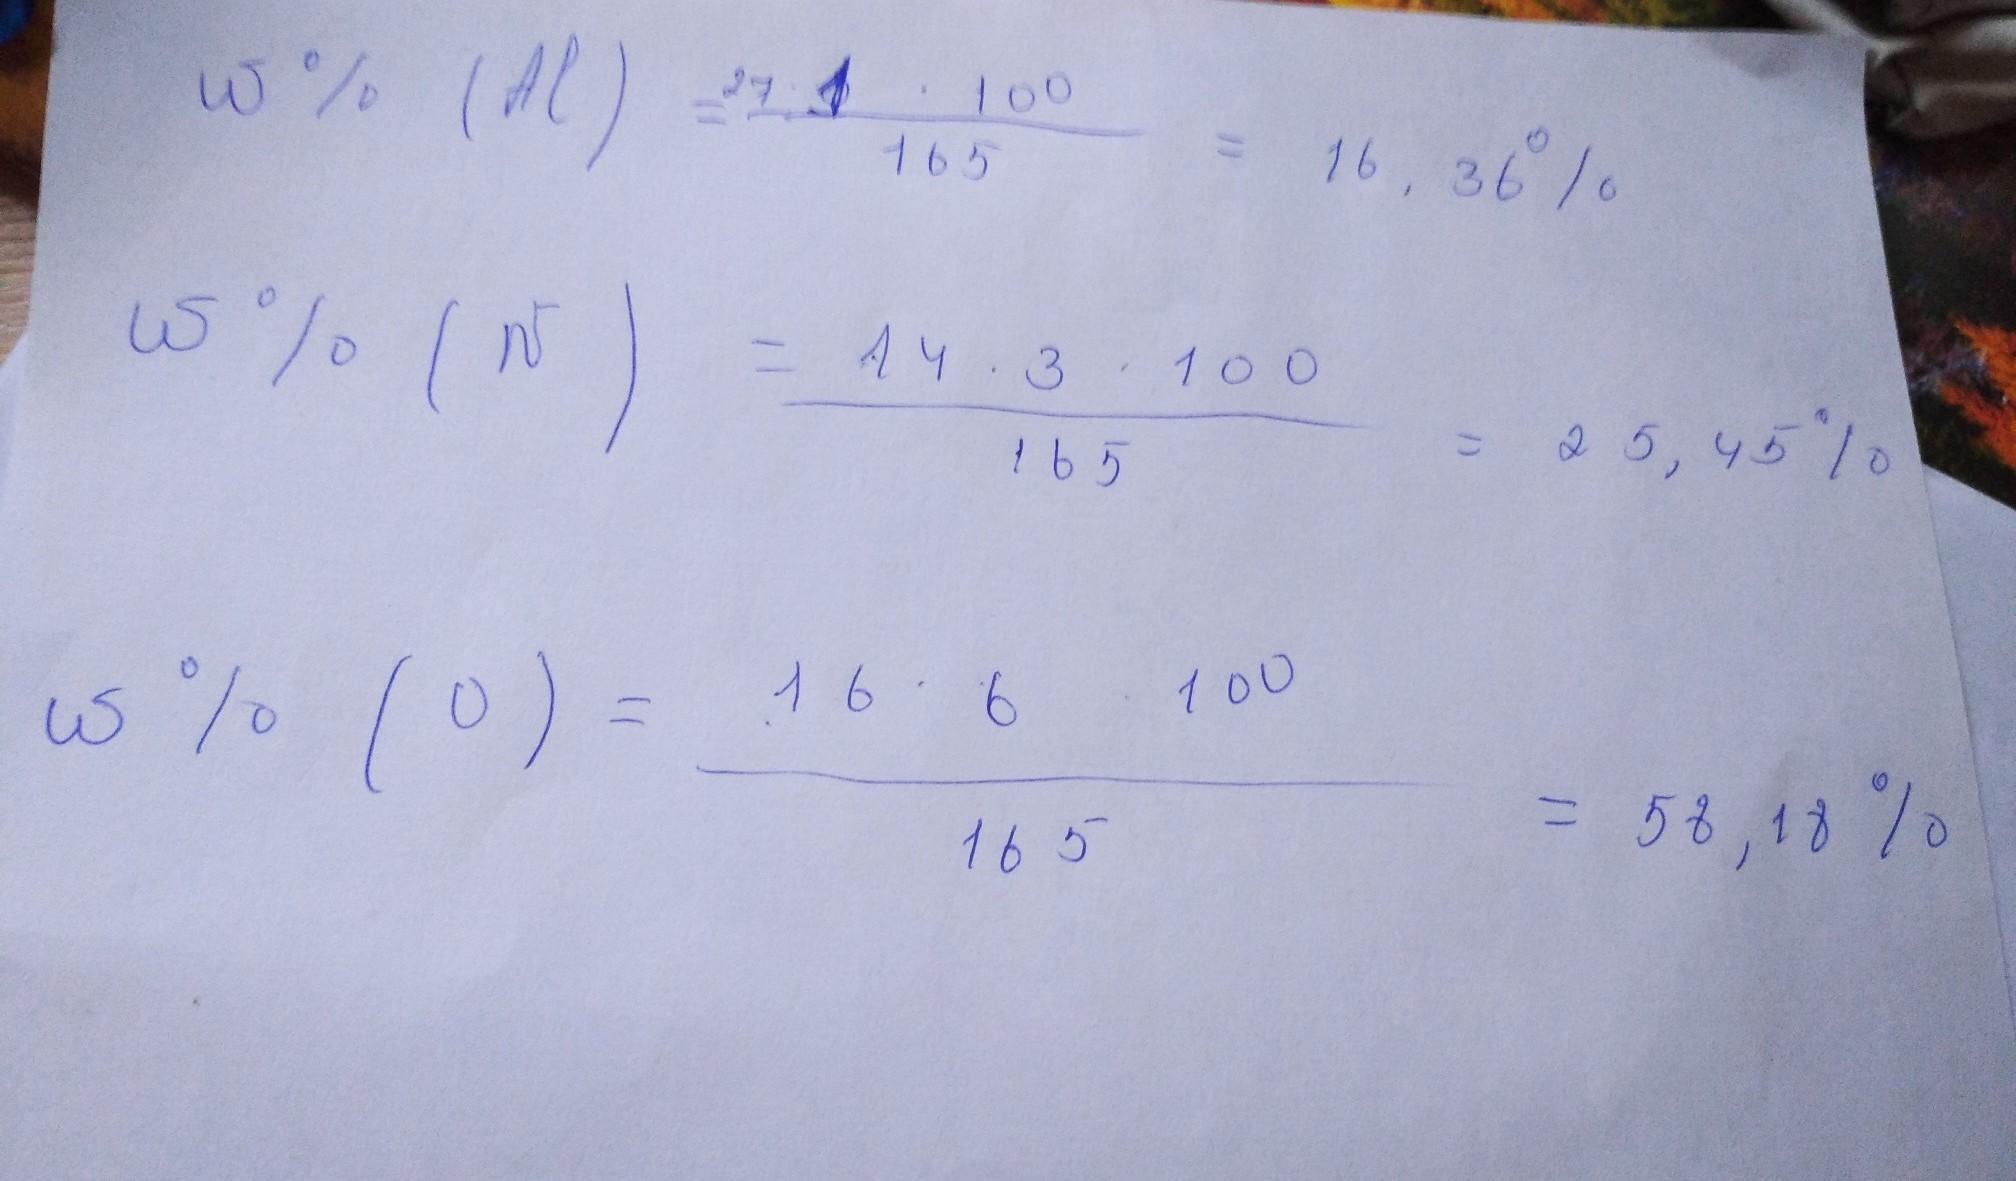 ω % (Al) = 27 · 1 · 100 / 165 = 16,36%
ω % (N) = 14 · 3 · 100 / 165 = 25,45%
ω % (O) = 16 · 6 · 100 / 165 = 58,18%